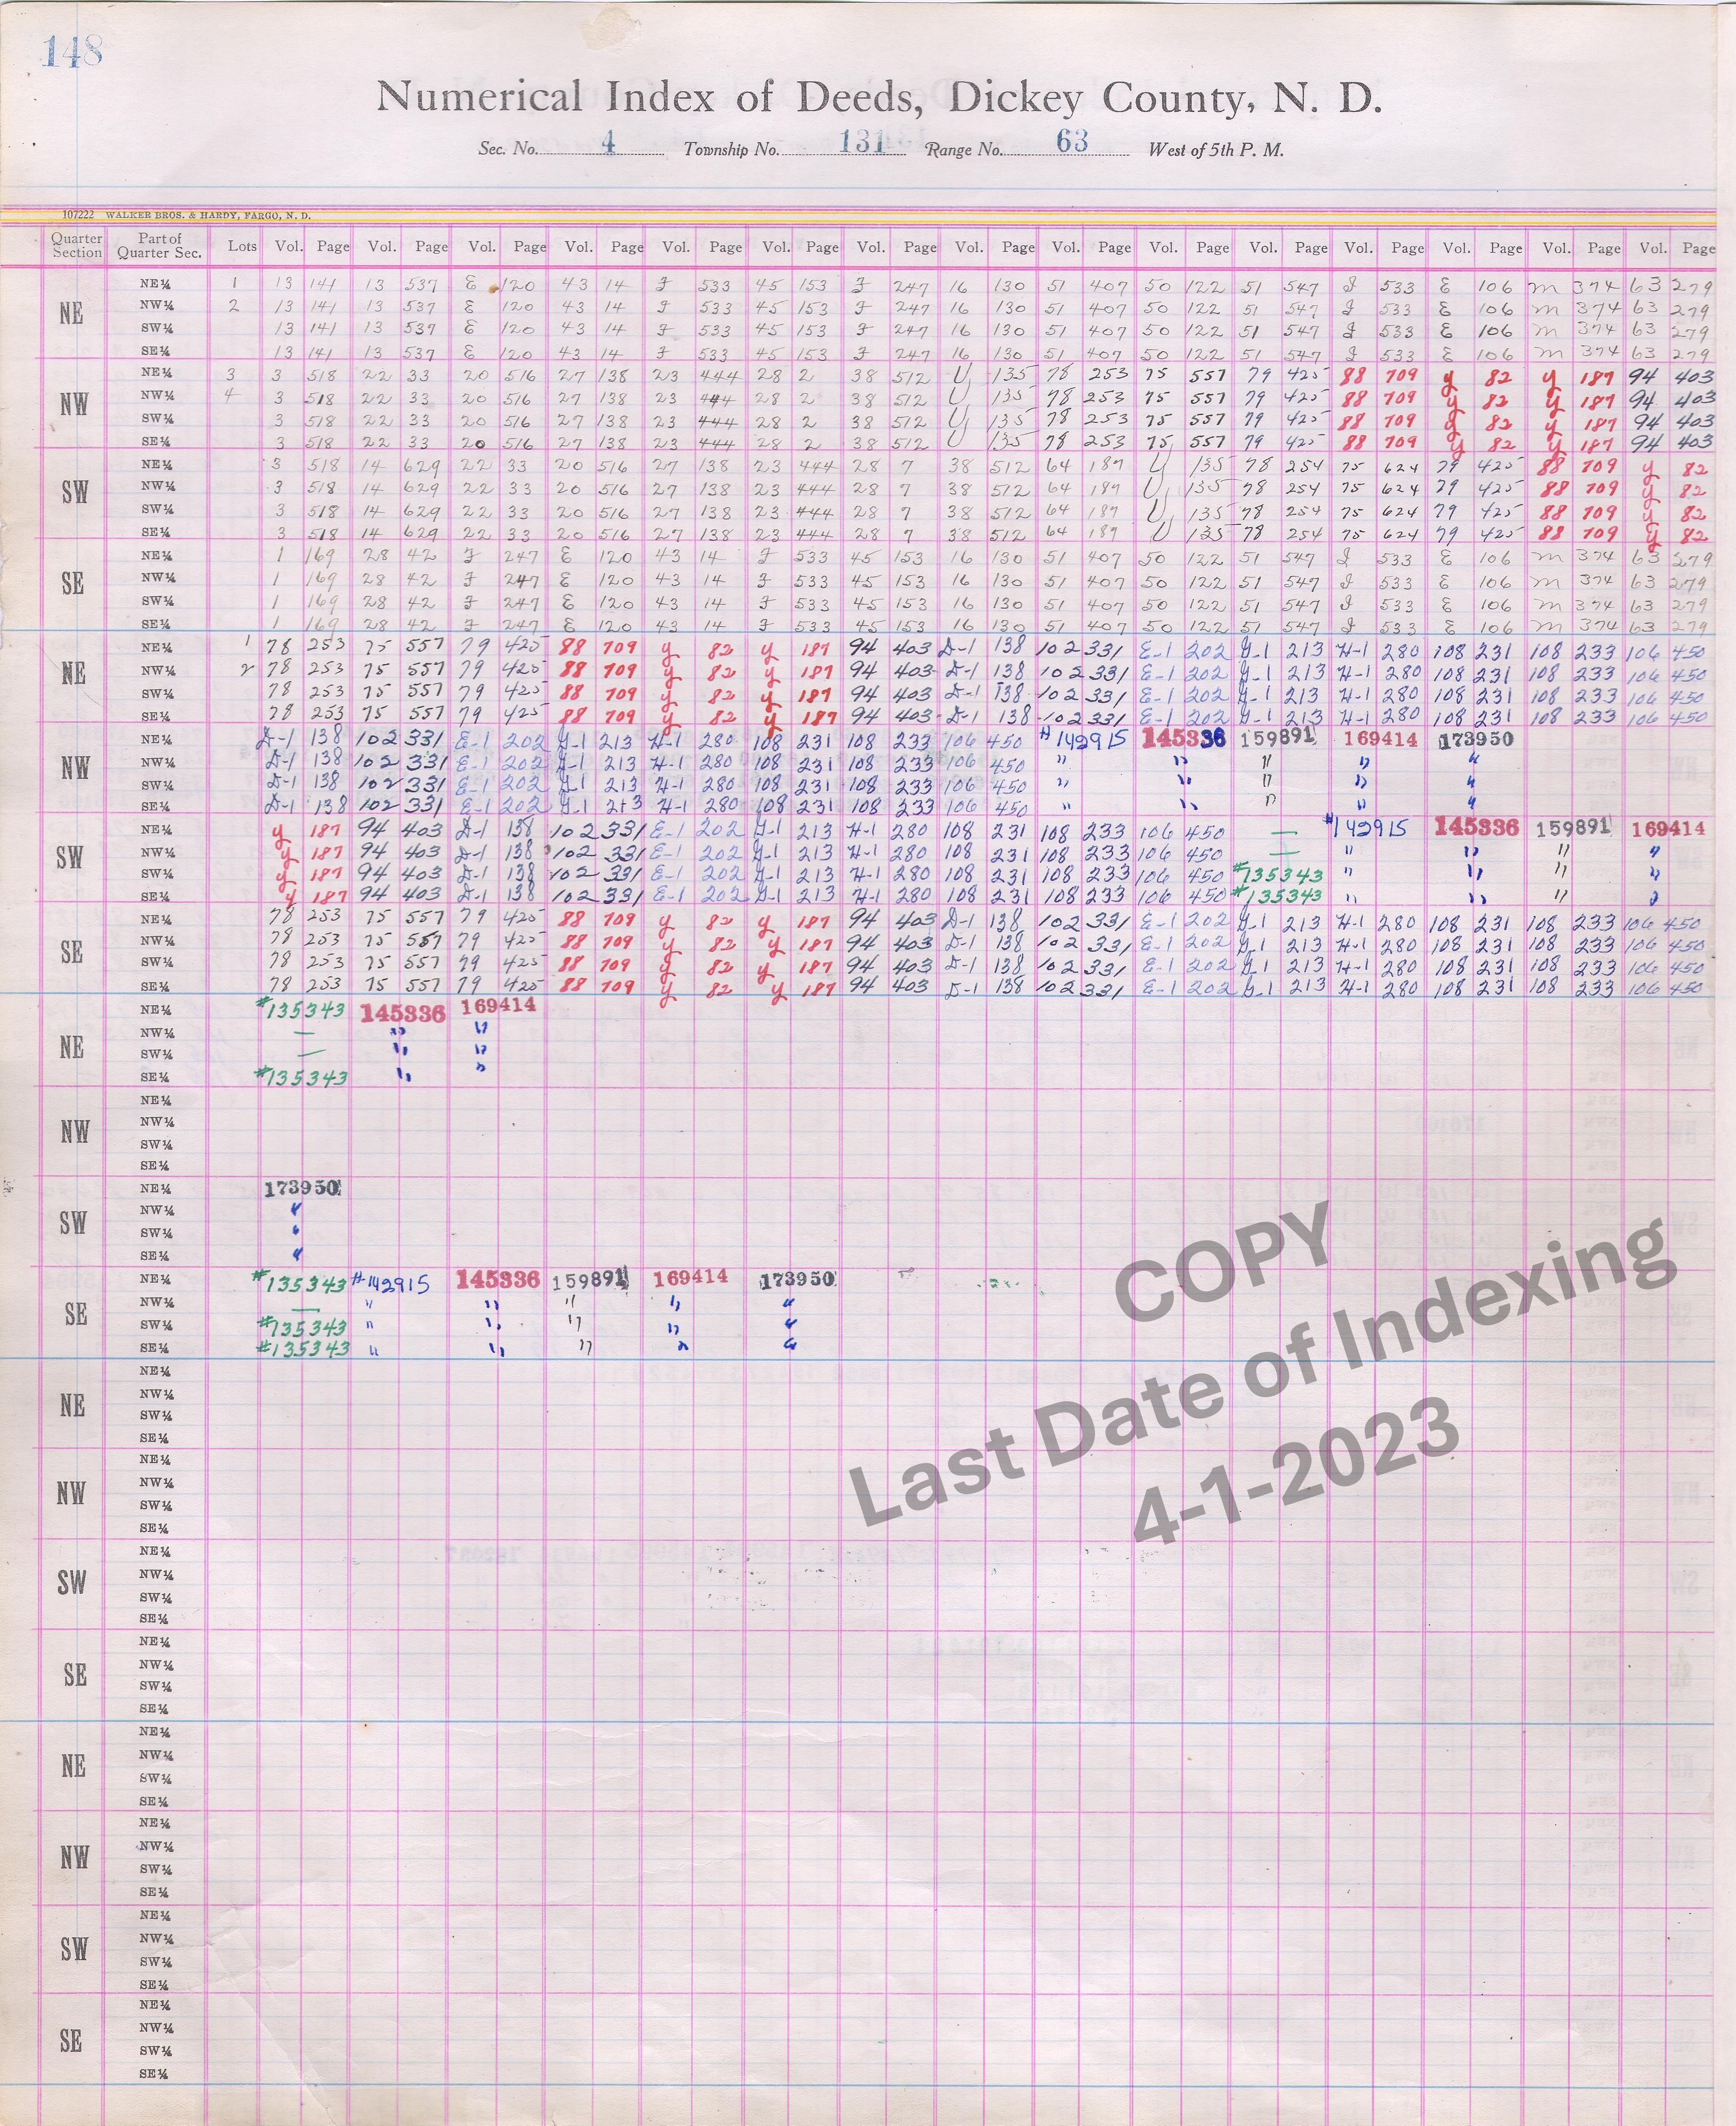 148
Numerical Index of Deeds, Dickey County, N. D.
Sec. No. 4 Township No. 131 Range No. 63 West of 5th P. M.
107222 WALKER BROS. & HARDY, FARGO, N. D.
Quarter Section Part of Quarter Sec. Lots Vol. Page Vol. Page Vol. Page Vol. Page Vol. Page Vol. Page Vol. Page Vol. Page Vol. Page Vol. Page Vol. Page Vol. Page Vol. Page Vol. Page Vol. Page
NE NE¼ 1 13 141 13 537 E 120 43 14 F 533 45 153 F 247 16 130 51 407 50 122 51 547 I 533 E 106 M 374 63 279
NW¼ 2 13 141 13 537 E 120 43 14 F 533 45 153 F 247 16 130 51 407 50 122 51 547 I 533 E 106 M 374 63 279
SW¼ 13 141 13 537 E 120 43 14 F 533 45 153 F 247 16 130 51 407 50 122 51 547 I 533 E 106 M 374 63 279
SE¼ 13 141 13 537 E 120 43 14 F 533 45 153 F 247 16 130 51 407 50 122 51 547 I 533 E 106 M 374 63 279
NW NE¼ 3 3 518 22 33 20 516 27 138 23 444 28 2 38 512 U 135 78 253 75 557 79 425 88 709 y 82 y 187 94 403
NW¼ 4 3 518 22 33 20 516 27 138 23 444 28 2 38 512 U 135 78 253 75 557 79 425 88 709 y 82 y 187 94 403
SW¼ 3 518 22 33 20 516 27 138 23 444 28 2 38 512 U 135 78 253 75 557 79 425 88 709 y 82 y 187 94 403
SE¼ 3 518 22 33 20 516 27 138 23 444 28 2 38 512 U 135 78 253 75 557 79 425 88 709 y 82 y 187 94 403
SW NE¼ 3 518 14 629 22 33 20 516 27 138 23 444 28 7 38 512 64 187 U 135 78 254 75 624 79 425 88 709 y 82
NW¼ 3 518 14 629 22 33 20 516 27 138 23 444 28 7 38 512 64 187 U 135 78 254 75 624 79 425 88 709 y 82
SW¼ 3 518 14 629 22 33 20 516 27 138 23 444 28 7 38 512 64 187 U 135 78 254 75 624 79 425 88 709 y 82
SE¼ 3 518 14 629 22 33 20 516 27 138 23 444 28 7 38 512 64 187 U 135 78 254 75 624 79 425 88 709 y 82
SE NE¼ 1 169 28 42 F 247 E 120 43 14 F 533 45 153 16 130 51 407 50 122 51 547 I 533 E 106 M 374 63 279
NW¼ 1 169 28 42 F 247 E 120 43 14 F 533 45 153 16 130 51 407 50 122 51 547 I 533 E 106 M 374 63 279
SW¼ 1 169 28 42 F 247 E 120 43 14 F 533 45 153 16 130 51 407 50 122 51 547 I 533 E 106 M 374 63 279
SE¼ 1 169 28 42 F 247 E 120 43 14 F 533 45 153 16 130 51 407 50 122 51 547 I 533 E 106 M 374 63 279
NE NE¼ 1 78 253 75 557 79 425 88 709 y 82 y 187 94 403 D-1 138 102 331 E-1 202 G-1 213 H-1 280 108 231 108 233 106 450
NW¼ 2 78 253 75 557 79 425 88 709 y 82 y 187 94 403 D-1 138 102 331 E-1 202 G-1 213 H-1 280 108 231 108 233 106 450
SW¼ 78 253 75 557 79 425 88 709 y 82 y 187 94 403 D-1 138 102 331 E-1 202 G-1 213 H-1 280 108 231 108 233 106 450
SE¼ 78 253 75 557 79 425 88 709 y 82 y 187 94 403 D-1 138 102 331 E-1 202 G-1 213 H-1 280 108 231 108 233 106 450
NW NE¼ D-1 138 102 331 E-1 202 G-1 213 H-1 280 108 231 108 233 106 450 #142915 145336 159891 169414 173950
NW¼ D-1 138 102 331 E-1 202 G-1 213 H-1 280 108 231 108 233 106 450 " " " " "
SW¼ D-1 138 102 331 E-1 202 G-1 213 H-1 280 108 231 108 233 106 450 " " " " "
SE¼ D-1 138 102 331 E-1 202 G-1 213 H-1 280 108 231 108 233 106 450 " " " " "
SW NE¼ y 187 94 403 D-1 138 102 331 E-1 202 G-1 213 H-1 280 108 231 108 233 106 450 — #142915 145336 159891 169414
NW¼ y 187 94 403 D-1 138 102 331 E-1 202 G-1 213 H-1 280 108 231 108 233 106 450 — " " " "
SW¼ y 187 94 403 D-1 138 102 331 E-1 202 G-1 213 H-1 280 108 231 108 233 106 450 #135343 " " " "
SE¼ y 187 94 403 D-1 138 102 331 E-1 202 G-1 213 H-1 280 108 231 108 233 106 450 #135343 " " " "
SE NE¼ 78 253 75 557 79 425 88 709 y 82 y 187 94 403 D-1 138 102 331 E-1 202 G-1 213 H-1 280 108 231 108 233 106 450
NW¼ 78 253 75 557 79 425 88 709 y 82 y 187 94 403 D-1 138 102 331 E-1 202 G-1 213 H-1 280 108 231 108 233 106 450
SW¼ 78 253 75 557 79 425 88 709 y 82 y 187 94 403 D-1 138 102 331 E-1 202 G-1 213 H-1 280 108 231 108 233 106 450
SE¼ 78 253 75 557 79 425 88 709 y 82 y 187 94 403 D-1 138 102 331 E-1 202 G-1 213 H-1 280 108 231 108 233 106 450
NE NE¼ #135343 145336 169414
NW¼ — " "
SW¼ — " "
SE¼ #135343 " "
NW NE¼
NW¼
SW¼
SE¼
SW NE¼ 173950
NW¼ "
SW¼ "
SE¼ "
SE NE¼ #135343 #142915 145336 159891 169414 173950
NW¼ — " " " " "
SW¼ #135343 " " " " "
SE¼ #135343 " " " " "
NE NE¼
NW¼
SW¼
SE¼
NW NE¼
NW¼
SW¼
SE¼
SW NE¼
NW¼
SW¼
SE¼
SE NE¼
NW¼
SW¼
SE¼
NE NE¼
NW¼
SW¼
SE¼
NW NE¼
NW¼
SW¼
SE¼
SW NE¼
NW¼
SW¼
SE¼
SE NE¼
NW¼
SW¼
SE¼
COPY
Last Date of Indexing
4-1-2023